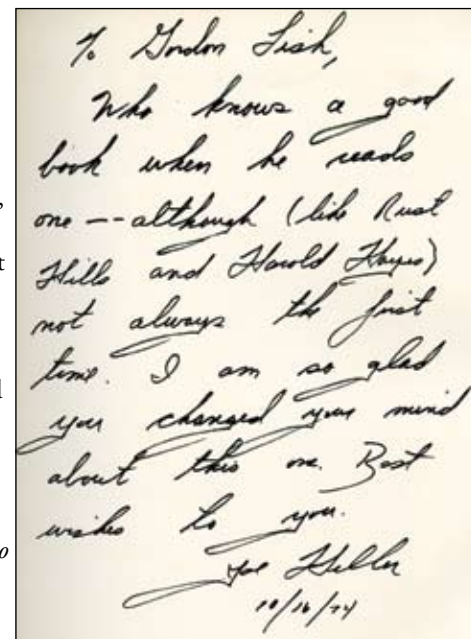 To Gordon Lish,
Who knows a good
book when he reads
one -- although (like Rust
Hills and Harold Hayes)
not always the first
time. I am so glad
you changed your mind
about this one. Best
wishes to you.
Joe Heller
10/16/74